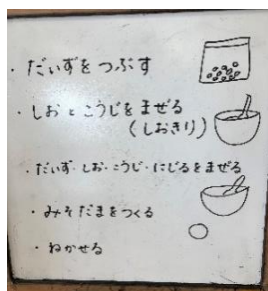 ・だいずをつぶす
・しおとこうじをまぜる
(しおきり)
・だいず・しお・こうじ・にじるをまぜる
・みそだまをつくる
・ねかせる